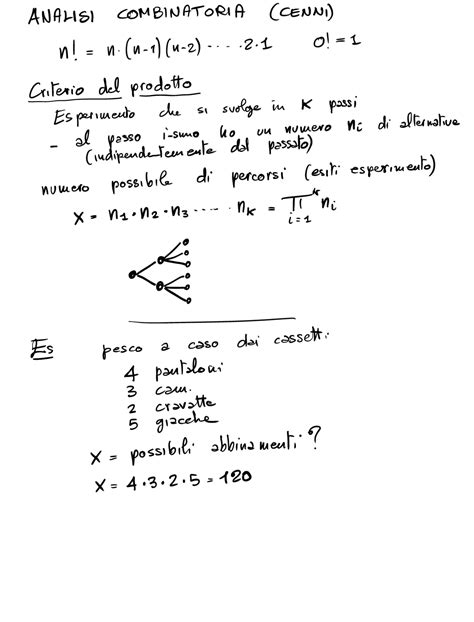 ANALISI COMBINATORIA (CENNI)
n! = n·(n-1)(n-2)·····2·1 0! = 1
Criterio del prodotto
Esperimento che si svolge in K passi
- al passo i-simo ho un numero ni di alternative
(indipendentemente dal passato)
numero possibile di percorsi (esiti esperimento)
X = n1·n2·n3····· nK = ∏ ni
k
i=1
Es pesco a caso dai cassetti
4 pantaloni
3 cam.
2 cravatte
5 giacche
X = possibili abbinamenti?
X = 4·3·2·5 = 120